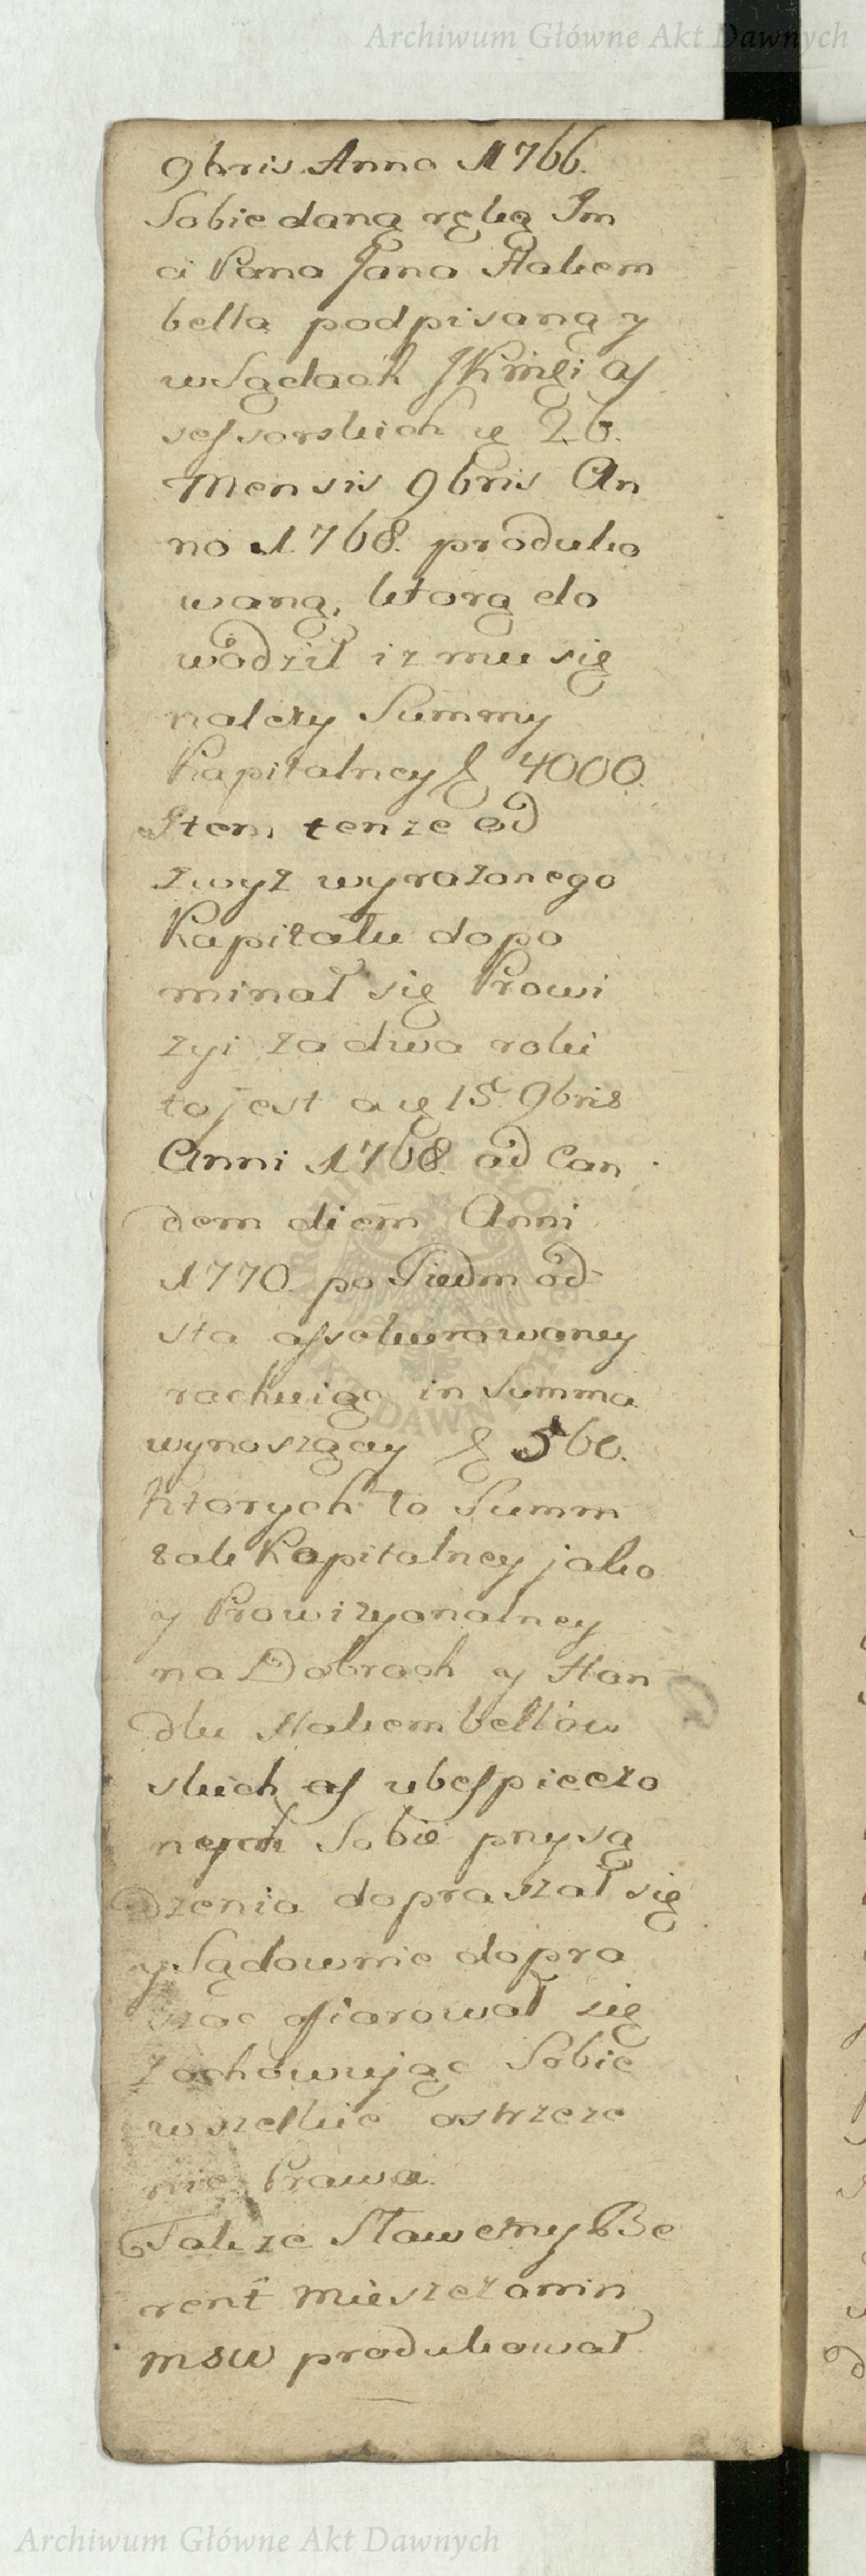 Archiwum Główne Akt Dawnych
9bris Anno 1766.
Sobie daną ręką Jm
ci Pana Jana Hakem
bella podpisaną y
w Sądach JKmści as
sessorskich d. 26.
Mensis 9bris An
no 1768. produko
waną, ktorą do
wodził iz mu się
należy Summy
Kapitalney f 4000.
Item tenze od
zwyż wyrażonego
Kapitału dopo
minał się Prowi
zyi za dwa roki
to jest a d. 15. 9bris
Anni 1768. ad ean
dem diem Anni
1770. po Siedm od
sta assekurowaney
rachuiąc in Summa
wynoszącey f 560.
Ktorych to Summ
zak Kapitalney jako
y Prowizyonalney
na Dobrach y Han
dlu Hakembellow
skich as ubespieczo
nych Sobie przysą
dzenia dopraszał się
y Sądownie dopro
szac ofiarował się
Zachowując Sobie
wszelkie ostrzeze
nie Prawa.
Takze Sławetny Be
rent Mieszczanin
msw produkował
Archiwum Główne Akt Dawnych